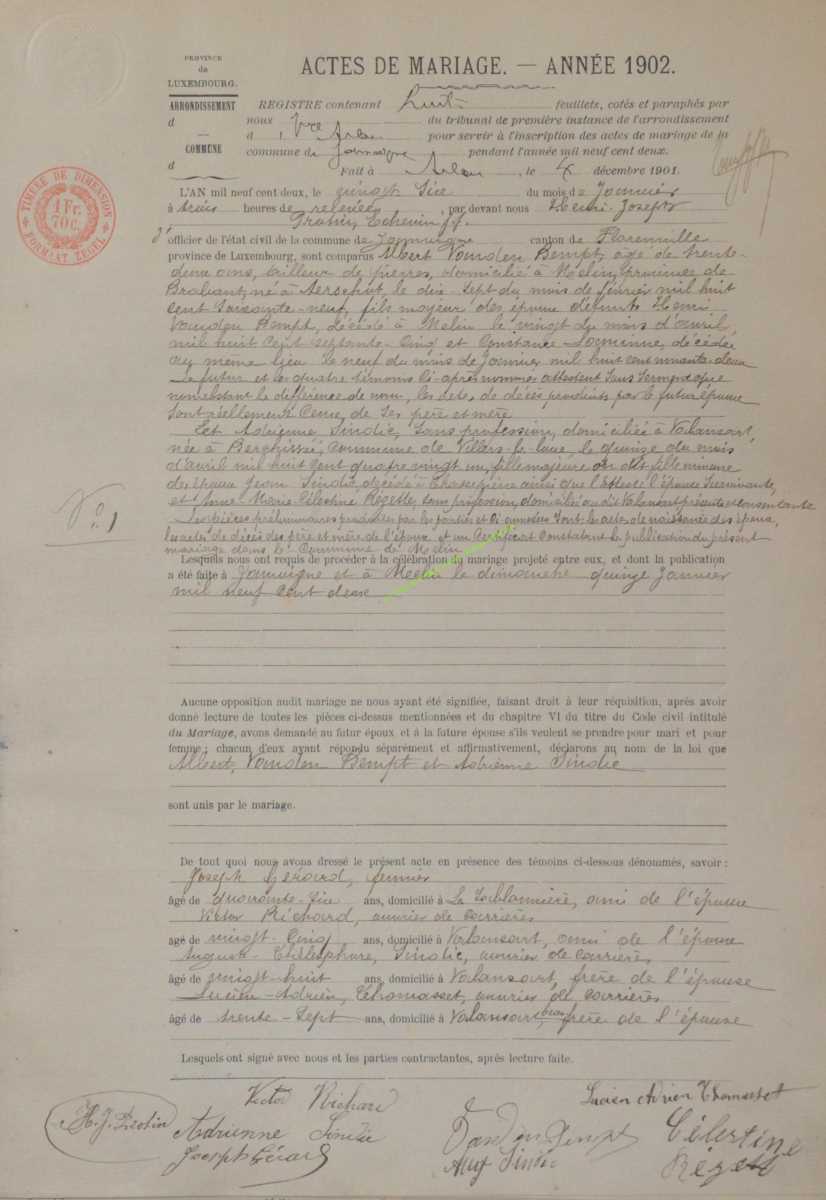 PROVINCE
de
LUXEMBOURG.
ACTES DE MARIAGE. — ANNÉE 1902.
ARRONDISSEMENT
d
COMMUNE
d
REGISTRE contenant huit feuillets, cotés et paraphés par
nous du tribunal de première instance de l'arrondissement
d'Arlon pour servir à l'inscription des actes de mariage de la
commune de Jamoigne pendant l'année mil neuf cent deux.
Fait à Arlon, le décembre 1901.
TIMBRE DE DIMENSION
1 Fr. 70c.
FORMAAT ZEGEL
L'AN mil neuf cent deux, le vingt six du mois de Janvier
à trois heures de relevée, par devant nous Henri-Joseph
Echevin ff.
d' officier de l'état civil de la commune de Jamoigne canton de Florenville
province de Luxembourg, sont comparus Albert Vanden Bempt, âgé de trente-
deux ans, tailleur de pierres, domicilié à Melin, province de
Brabant, né à Aerschot, le dix-sept du mois de février mil huit
cent soixante-neuf, fils majeur des époux défunts Henri
Vanden Bempt, décédé à Melin le vingt du mois d'avril
mil huit cent septante-cinq et Constance décédée
au même lieu le neuf du mois de Janvier mil huit cent nonante-deux
Le futur et les quatre témoins ci-après nommés attestent sous serment que
nonobstant la différence de nom, les actes de décès produits par le futur époux
sont réellement ceux de ses père et mère
Et Adrienne Sindic, sans profession, domiciliée à Valansart,
née à commune de Villers-la-loue, le quinze du mois
d'avril mil huit cent quatre vingt un, fille majeure
des époux Jean Sindic, décédé à Chassepierre ainsi que l'atteste l'épouse survivante,
et Anne-Marie Célestine Rézette, sans profession, domiciliée au dit Valansart présente et consentante
Les pièces préliminaires produites par les parties et ci annexées sont les actes de naissance des époux,
les actes de décès des père et mère de l'époux et un certificat constatant la publication du présent
mariage dans la commune de Melin
N° 1
Lesquels nous ont requis de procéder à la célébration du mariage projeté entre eux, et dont la publication
a été faite à Jamoigne et à Melin le dimanche quinze Janvier
mil neuf cent deux
Aucune opposition audit mariage ne nous ayant été signifiée, faisant droit à leur réquisition, après avoir
donné lecture de toutes les pièces ci-dessus mentionnées et du chapitre VI du titre du Code civil intitulé
du Mariage, avons demandé au futur époux et à la future épouse s'ils veulent se prendre pour mari et pour
femme ; chacun d'eux ayant répondu séparément et affirmativement, déclarons au nom de la loi que
Albert, Vanden Bempt et Adrienne Sindic
sont unis par le mariage.
De tout quoi nous avons dressé le présent acte en présence des témoins ci-dessous dénommés, savoir :
Joseph Gérard, fermier
âgé de quarante-six ans, domicilié à La Sablonnière, ami de l'épouse
Victor Richard, ouvrier de carrières
agé de vingt-cinq ans, domicilié à Valansart, ami de l'épouse
Auguste-Thélesphore, Sindic, ouvrier de carrières
âgé de vingt-huit ans, domicilié à Valansart, frère de l'épouse
Lucien-Adrien, Thomasset, ouvrier de carrières
âgé de trente-sept ans, domicilié à Valansart, beau frère de l'épouse
Lesquels ont signé avec nous et les parties contractantes, après lecture faite.
Victor Richard
Lucien Adrien Thomasset
Adrienne Sindic
Vanden Bempt
Célestine
Joseph Gérard
Aug Sindic
Rézette